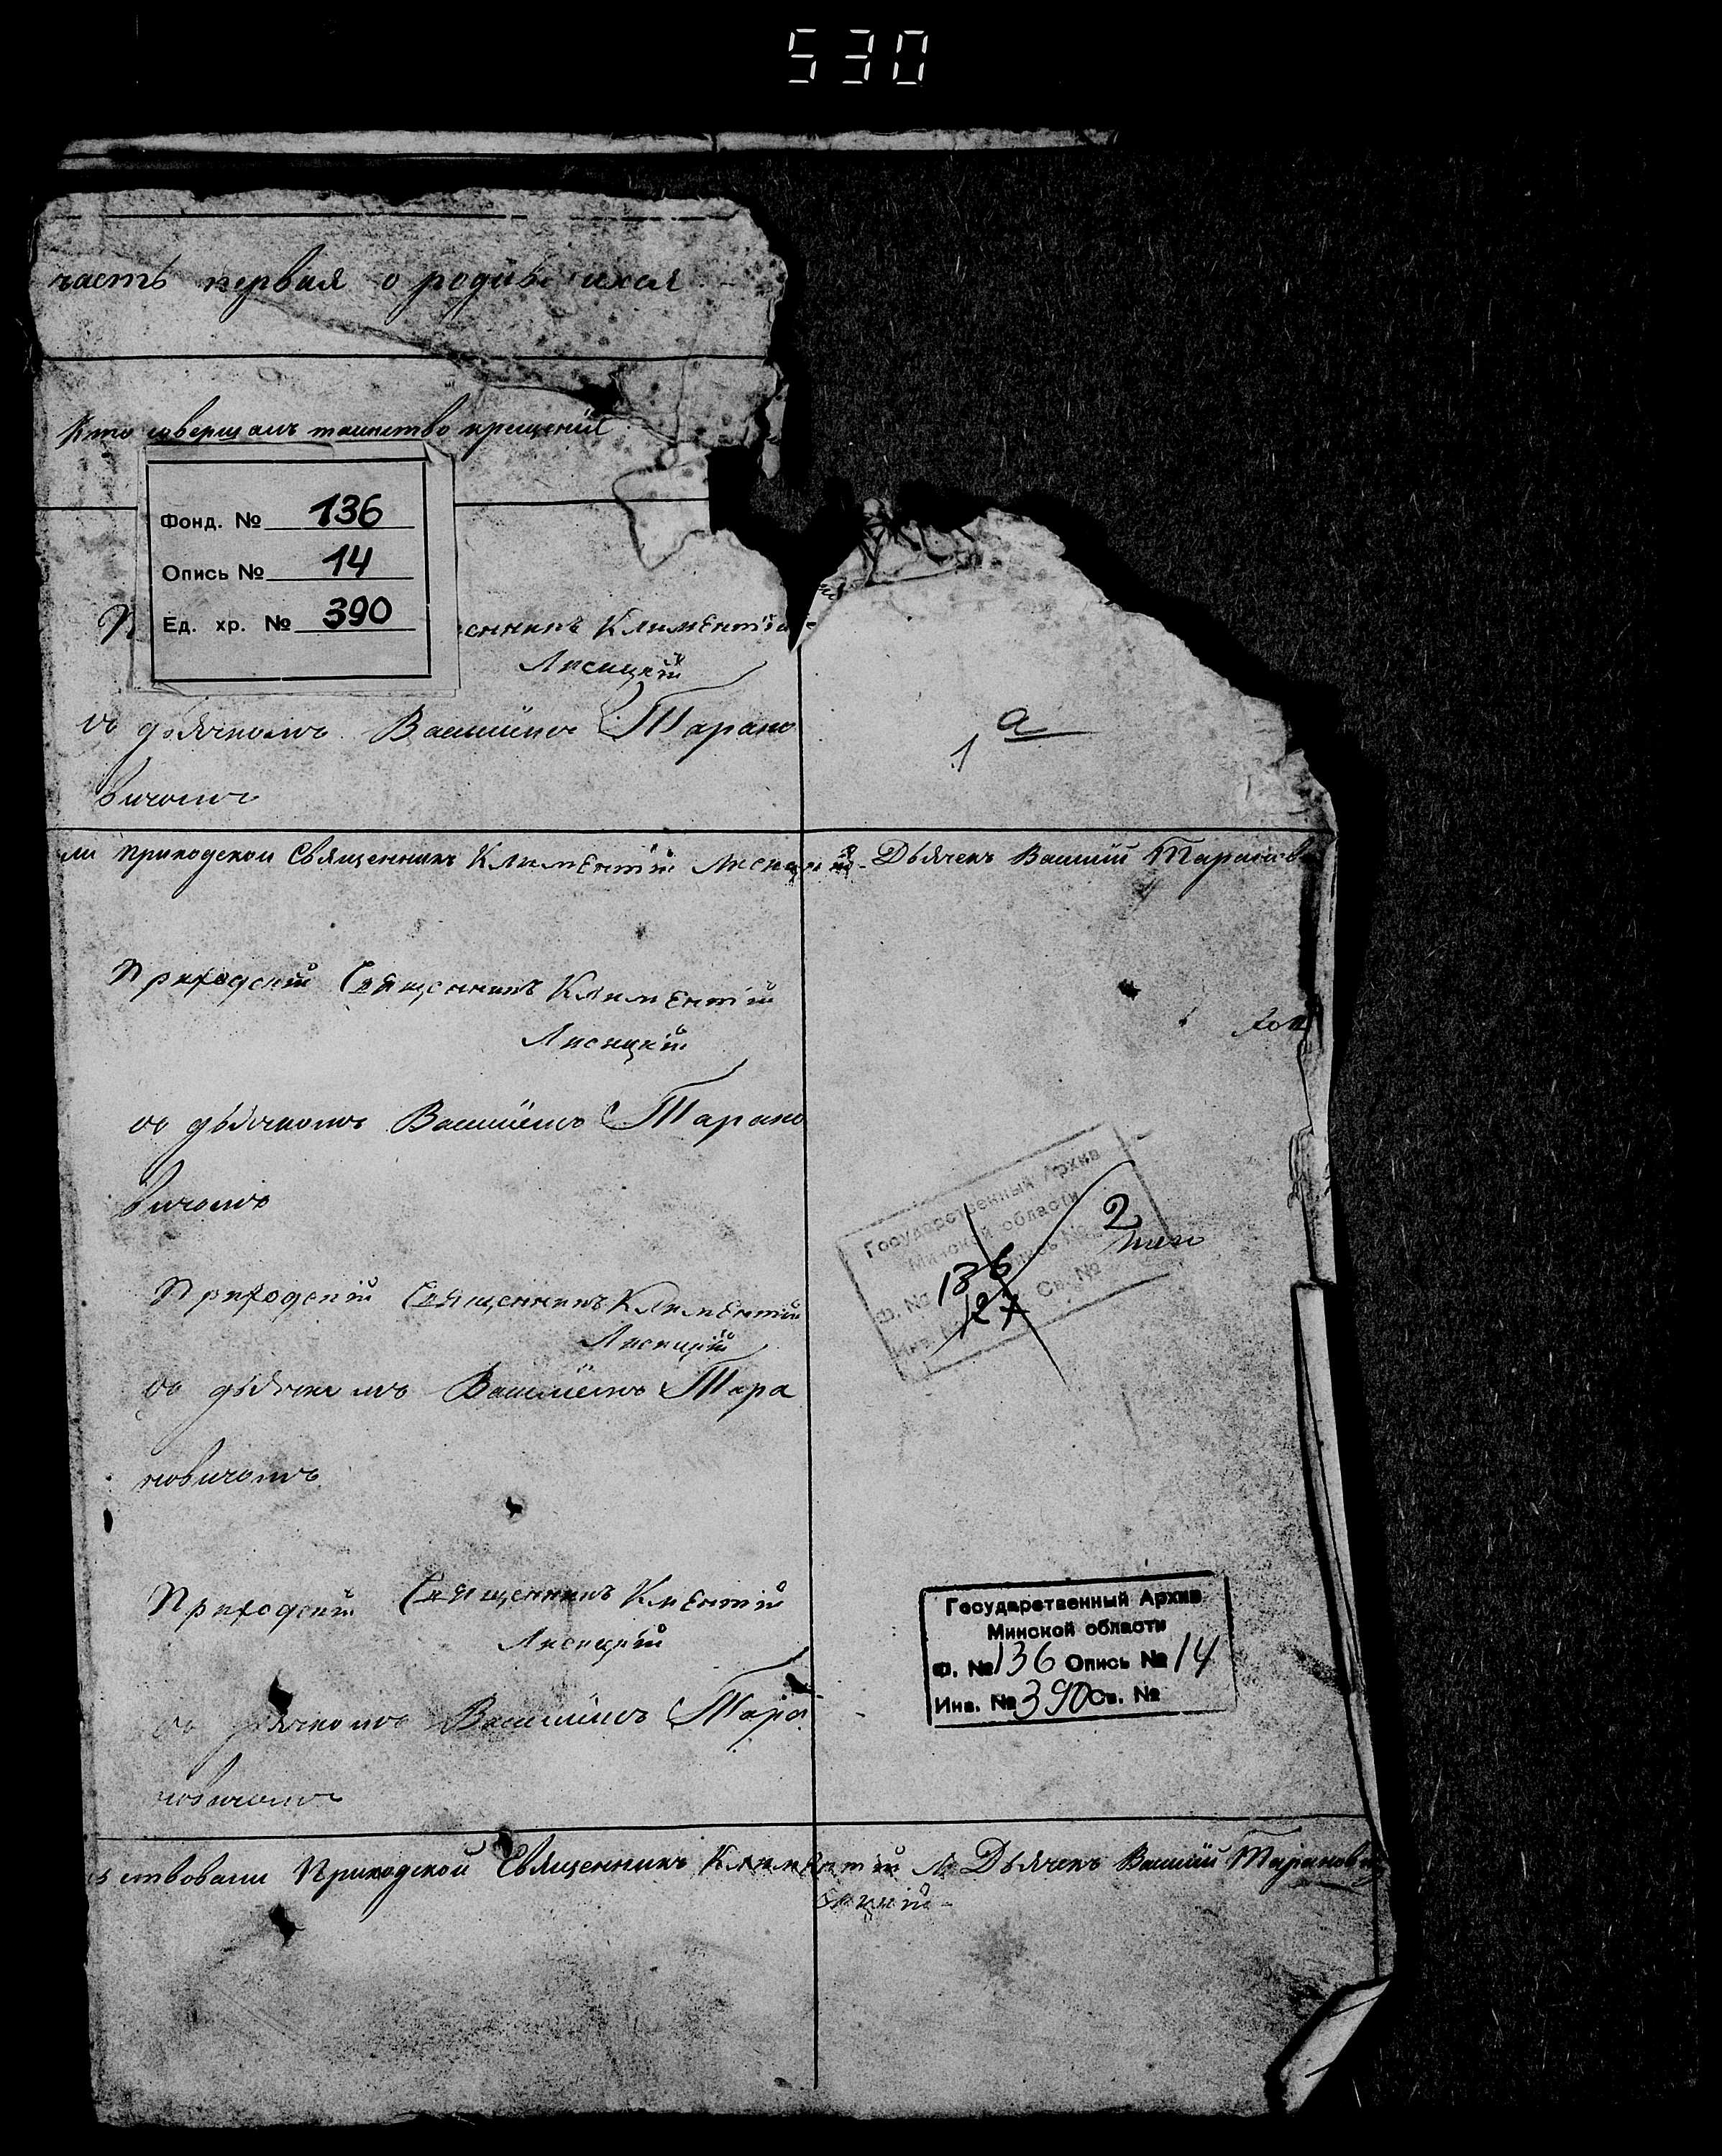 530
часть первая о родив ихся
Кто совершалъ таинство крещенія
Фонд. № 136
Опись № 14
Ед. хр. № 390
енникъ Климентій
Лисицкій
съ дьячкомъ Василіемъ Тарано
вичомъ
1 а
ли Приходской Священникъ Климентій Лисицкій - Дьячекъ Василій Таранови
Приходскій Священникъ Климентій
Лисицкій
съ дьячкомъ Василіемъ Тарано
вичомъ
Государственный Архив
Минской области
Ф. № 136 Опись № 2
Инв. № 127 Св. №
Приходскій Священникъ Климентій
Лисицкій
съ дьячкомъ Василіемъ Тара
новичомъ
Приходскій Священникъ Клментій
Лисицкій
съ дьячкомъ Василіемъ Тара
новичомъ
Государственный Архив
Минской области
Ф. № 136 Опись № 14
Инв. № 390 Св. №
ствовали Приходской Священникъ Климентій Ли Дьячекъ Василій Таранови
сицкій -